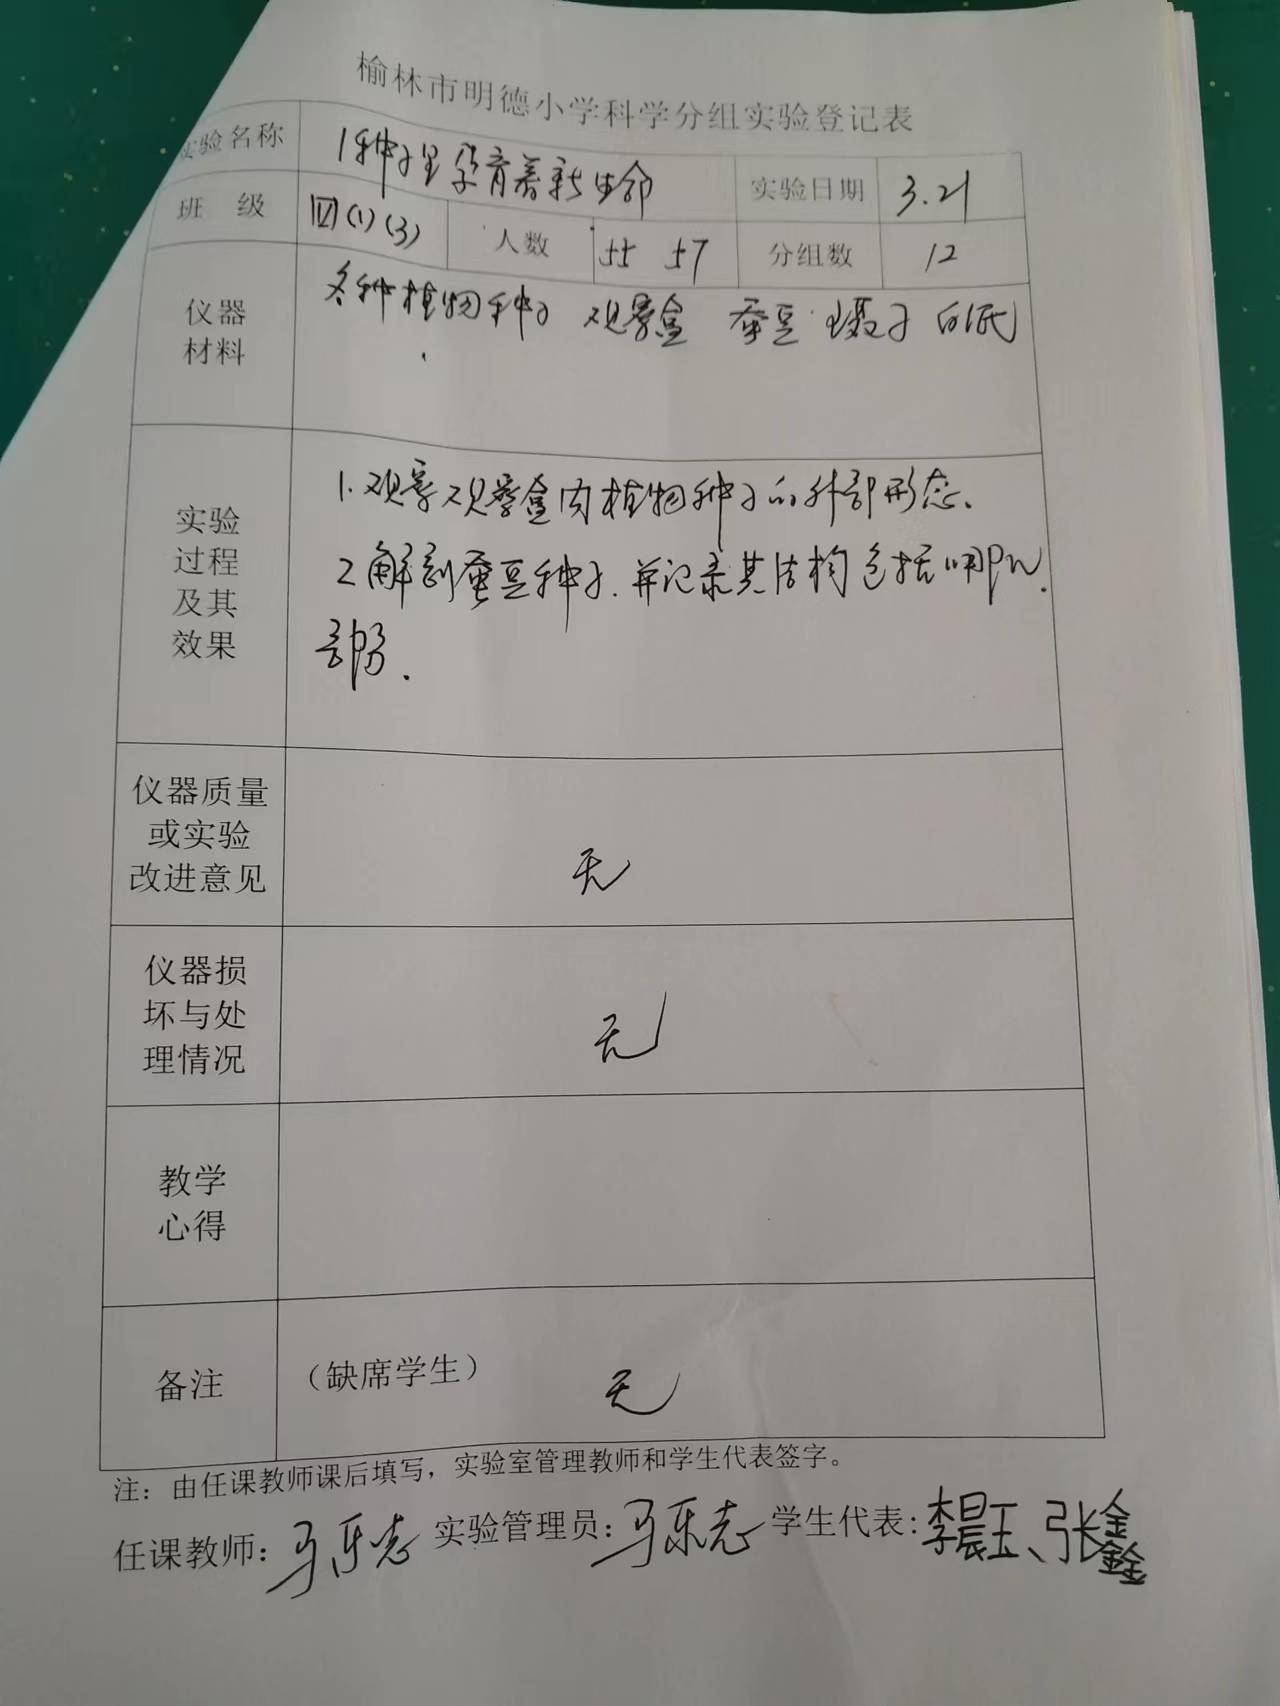 榆林市明德小学科学分组实验登记表
实验名称 1种子里孕育着新生命 实验日期 3.21
班 级 四(1)(3) 人数 55 57 分组数 12
仪器材料 各种植物种子 观察盒 蚕豆 镊子 白纸
实验过程及其效果
1.观察观察盒内植物种子的外部形态.
2解剖蚕豆种子.并记录其结构包括哪几
部分.
仪器质量或实验改进意见 无
仪器损坏与处理情况 无
教学心得
备注 (缺席学生) 无
注:由任课教师课后填写,实验室管理教师和学生代表签字。
任课教师:马乐志 实验管理员:马乐志 学生代表:李晨玉、张鑫